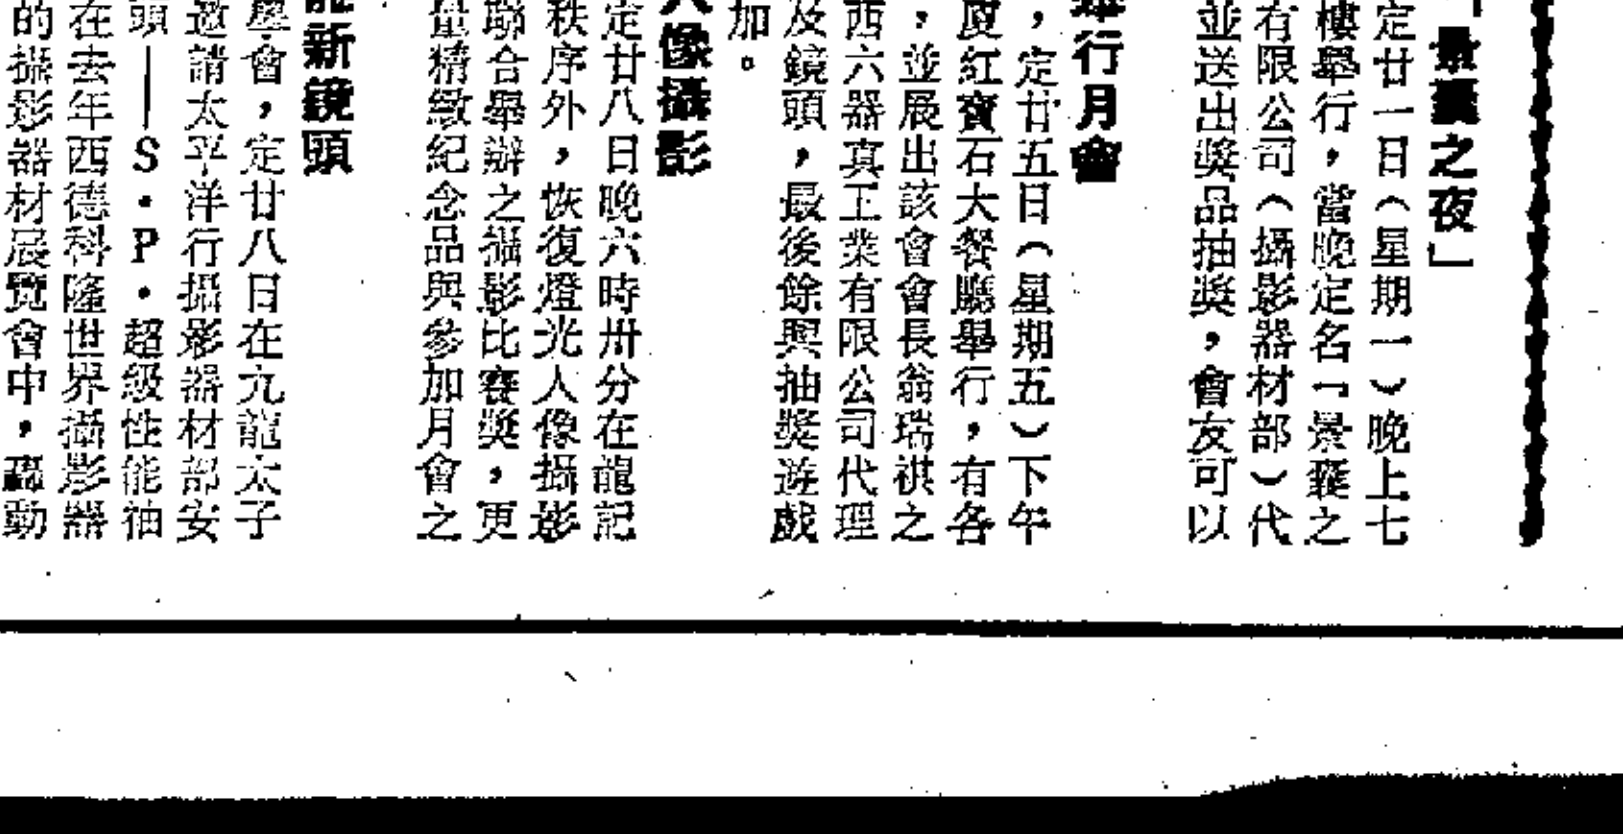 景囊之夜」
定廿一日（星期一）晚上七
樓舉行，當晚定名「景囊之
有限公司（攝影器材部）代
並送出獎品抽獎，會友可以
舉行月會
，定廿五日（星期五）下午
廈紅寶石大餐廳舉行，有各
，並展出該會會長翁瑞祺之
西六器真工業有限公司代理
及鏡頭，最後餘興抽獎遊戲
加。
人像攝影
定廿八日晚六時卅分在龍記
秩序外，恢復燈光人像攝影
聯合舉辦之攝影比賽獎，更
量精緻紀念品與參加月會之
能新鏡頭
學會，定廿八日在九龍太子
邀請太平洋行攝影器材部安
頭——S．P．超級性能袖
在去年西德科隆世界攝影器
的攝影器材展覽會中，轟動